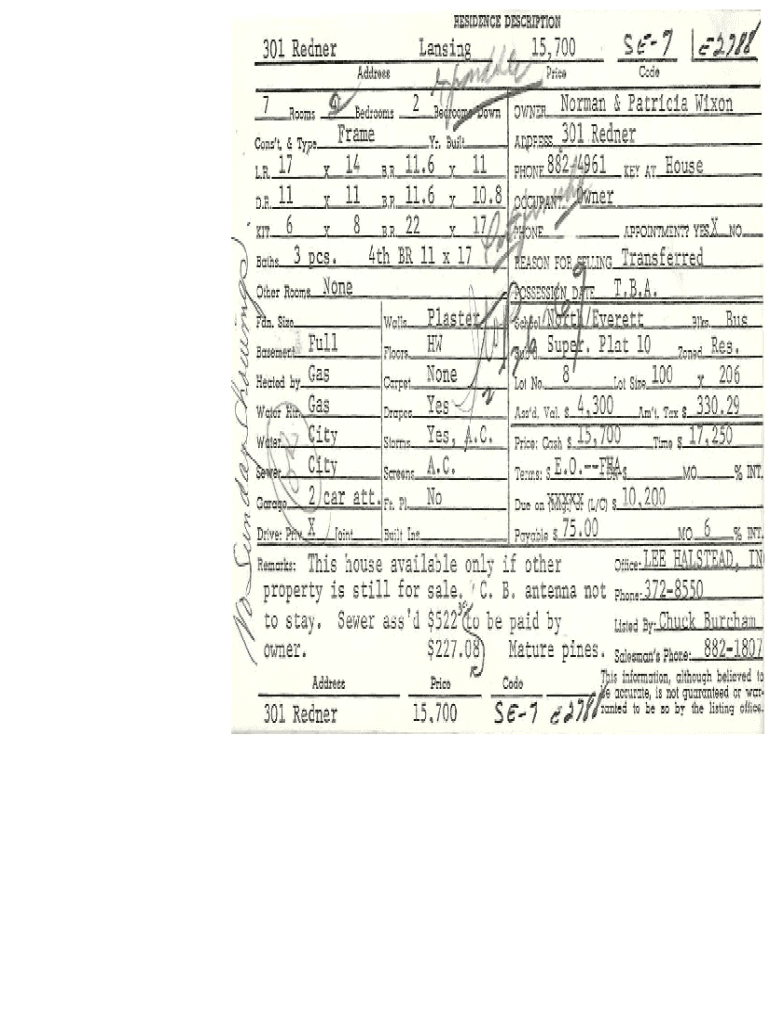 RESIDENCE DESCRIPTION
301 Redner Lansing 15,700 SE-7 E2788
Address Price Code
7 Rooms Bedrooms 2 Bedrooms Down OWNER Norman & Patricia Wixon
Cons't. & Type Frame Yr. Built ADDRESS 301 Redner
L.R. 17 x 14 B.R. 11.6 x 11 PHONE 882-4961 KEY AT House
D.R. 11 x 11 B.R. 11.6 x 10.8 OCCUPANT Owner
KIT. 6 x 8 B.R. 22 x 17 PHONE APPOINTMENT? YES X NO
Baths 3 pcs. 4th BR 11 x 17 REASON FOR SELLING Transferred
Other Rooms None POSSESSION DATE T.B.A.
Fdn. Size Walls Plaster School North/Everett Bus
Basement Full Floors HW Super. Plat 10 Zoned Res.
Heated by Gas Carpet None Lot No. 8 Lot Size 100 x 206
Water Htr. Gas Drapes Yes Ass'd. Val. $ 4,300 Am't. Tax $ 330.29
Water City Storms Yes, A.C. Price: Cash $ 15,700 Time $ 17,250
Sewer City Screens A.C. Terms: $ E.O.--FHA $ MO. % INT.
Garage 2 car att. Fr. Pl. No Due on XXXXX (L/C) $ 10,200
Drive: Priv. X Joint Built Ins Payable $ 75.00 MO. 6 % INT.
Remarks: This house available only if other Office: LEE HALSTEAD, IN
property is still for sale. C. B. antenna not Phone: 372-8550
to stay. Sewer ass'd $522 to be paid by Listed By: Chuck Burcham
owner. $227.08 Mature pines. Salesman's Phone: 882-1807
This information, although believed to
be accurate, is not guaranteed or war-
ranted to be so by the listing office.
Address Price Code
301 Redner 15,700 SE-7 E2788
No Sunday showings